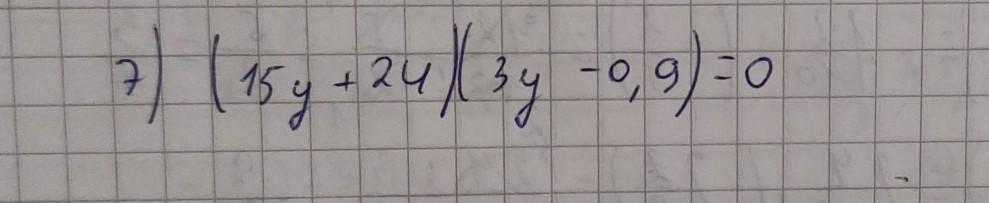 7) (15y + 24)(3y - 0,9) = 0